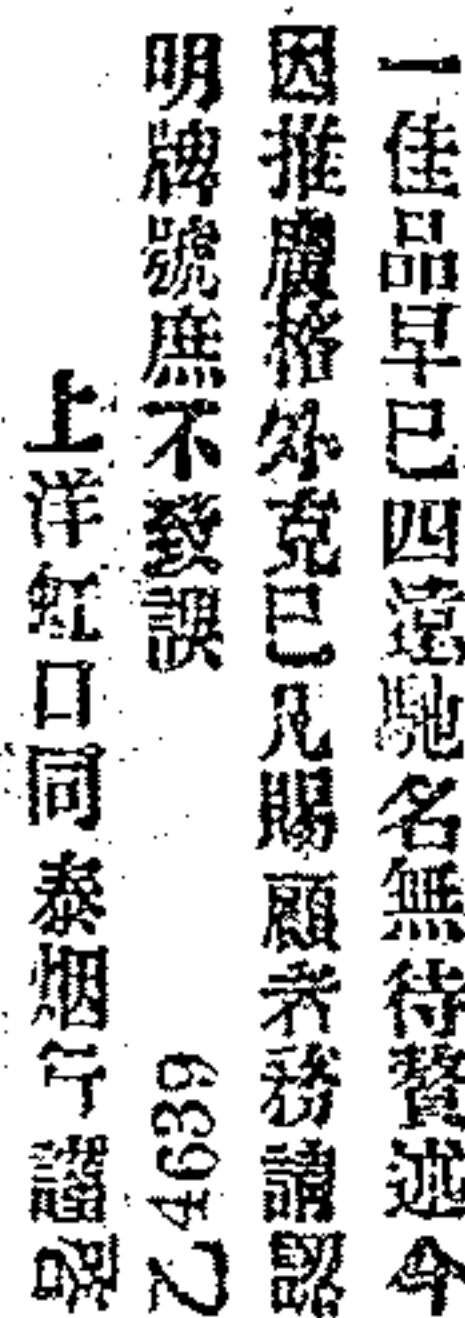 一佳品早已四遠馳名無待贅述今
因推廣格外克已凡賜顧者務請認
明牌號庶不致誤
Z4639
上洋虹口同泰烟行謹啟